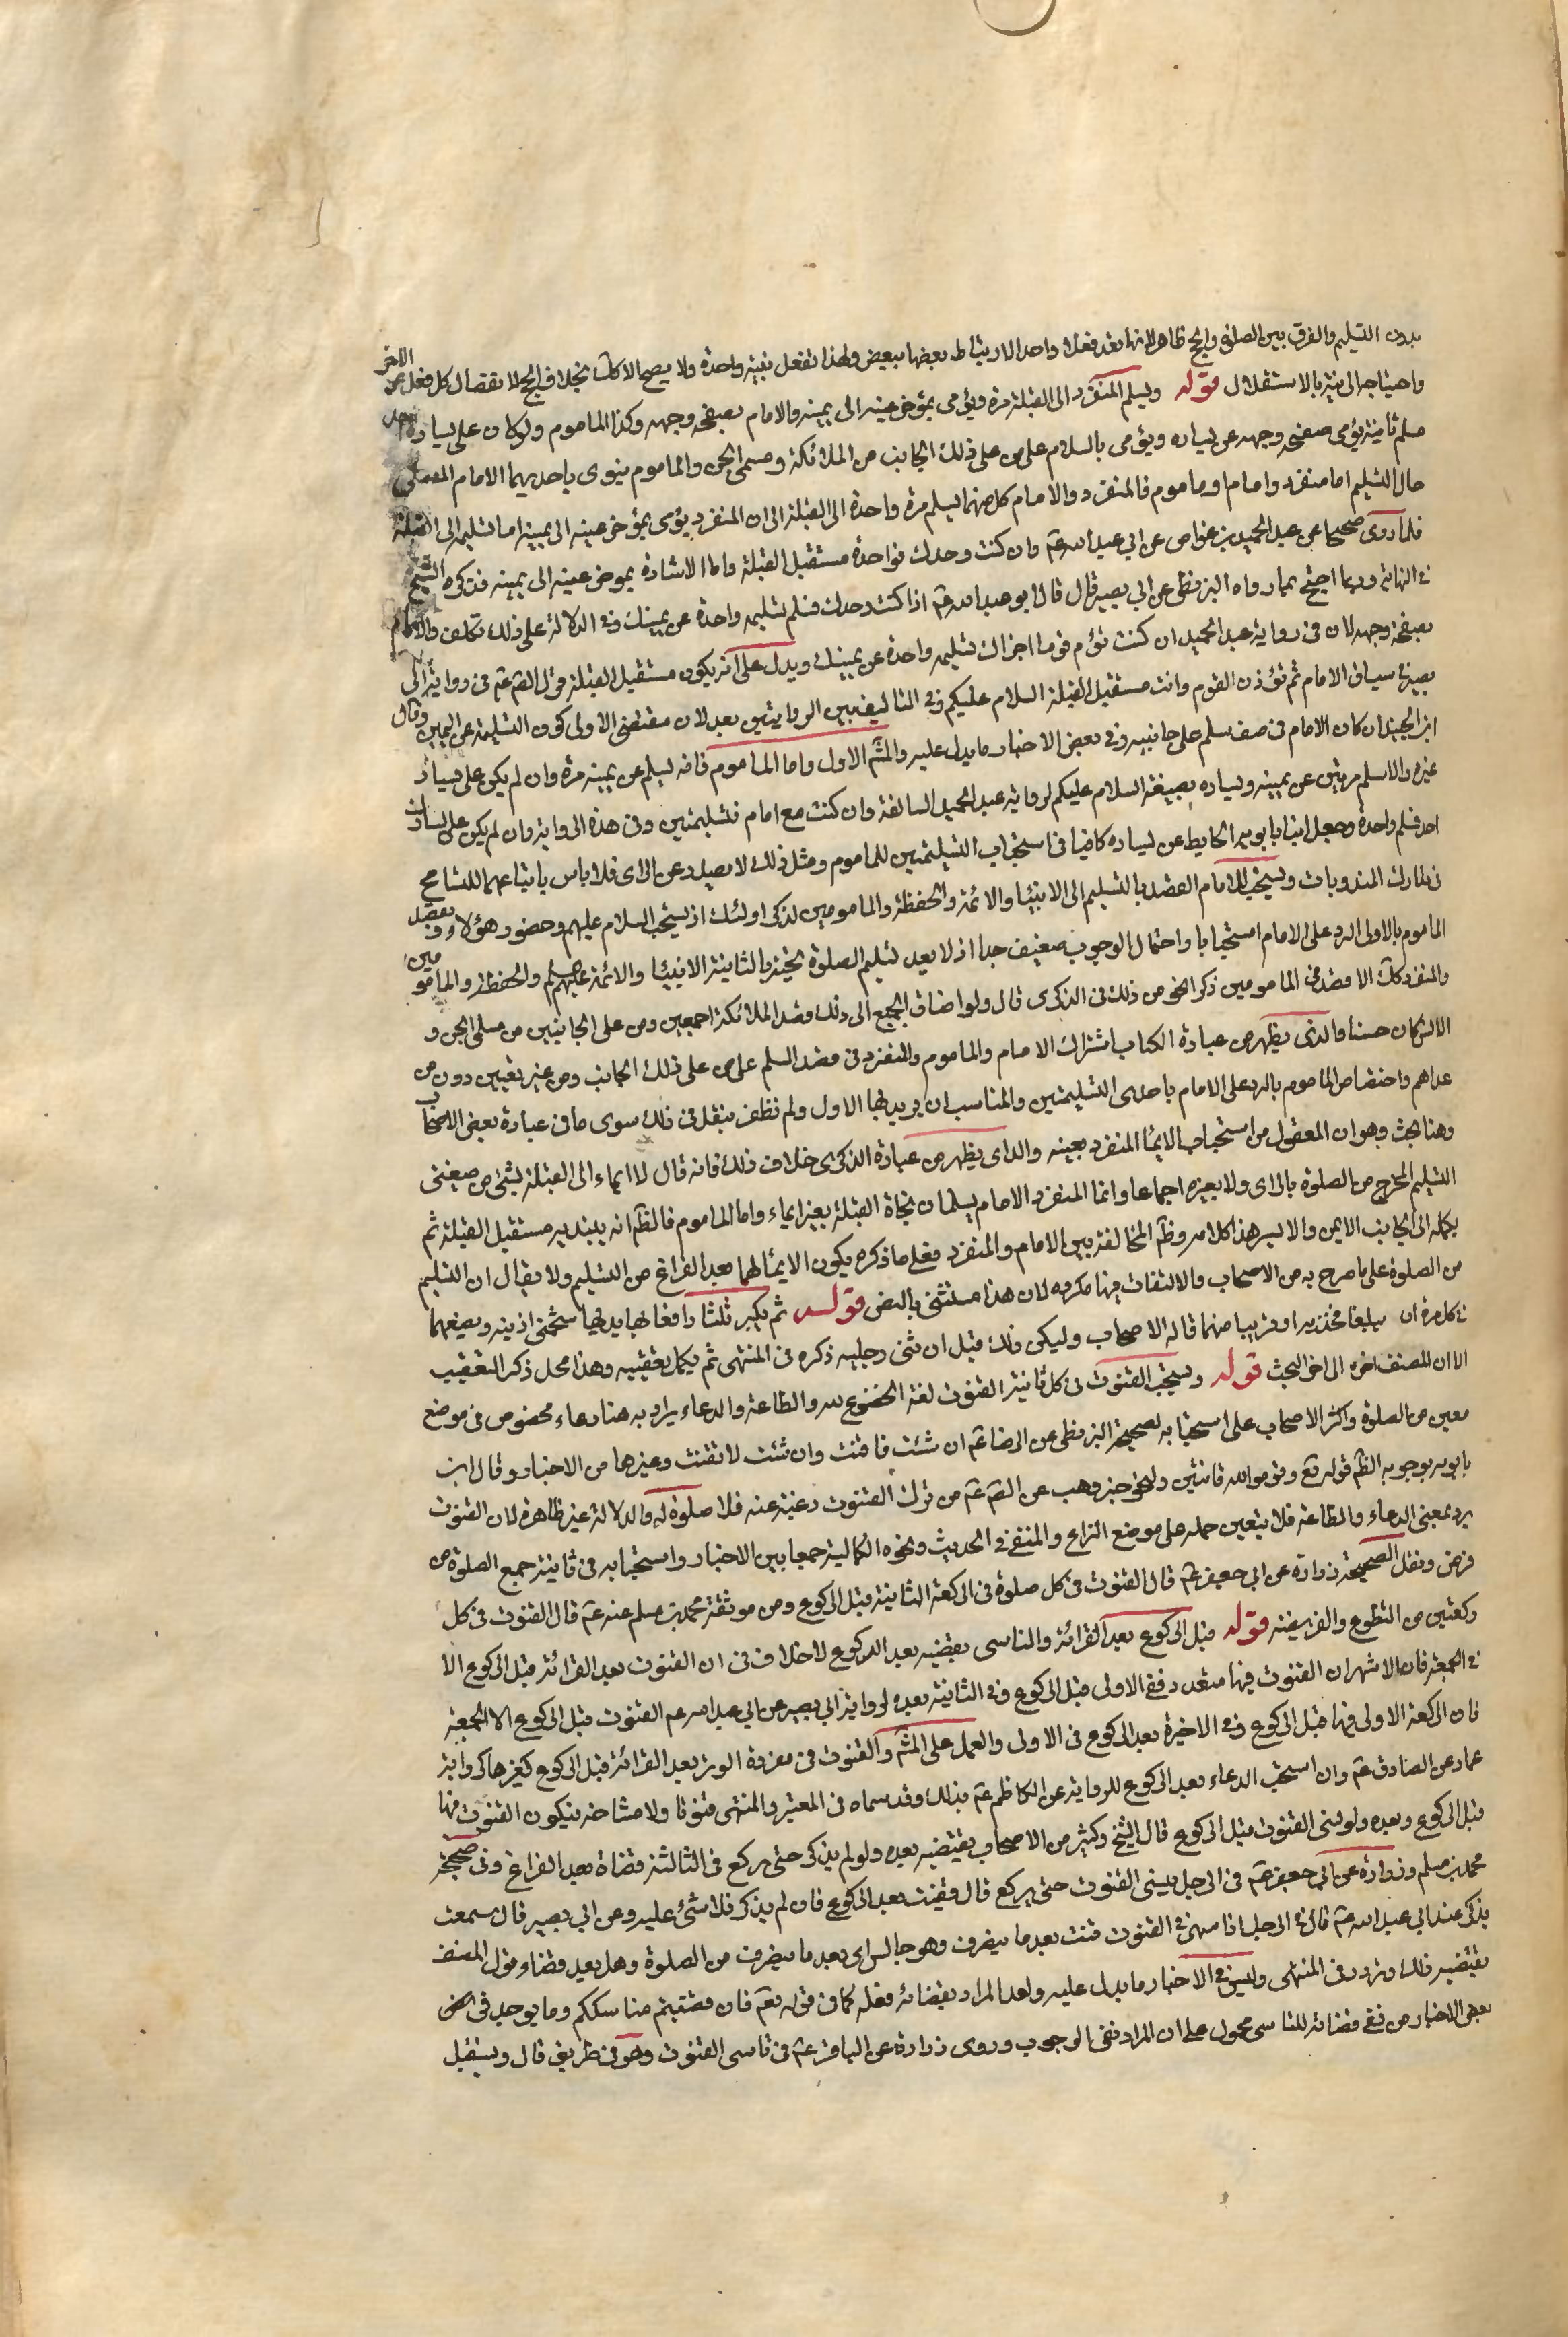 بدون التسليم والفرق بين الصلوة والحج ظاهر لانها تعد فعلا واحدا لارتباط بعضها ببعض ولهذا تفعل بنية واحدة ولا يصح الا كك بخلاف الحج لانفصال كل فعل عن الاخر
واحتياجه الى نية بالاستقلال قوله ويسلم المنفرد الى القبلة مرة ويؤمى بمؤخر عينه الى يمينه والامام بصفحة وجهه وكذا الماموم ولو كان على يساره احد
سلم ثانية يؤمى بصفحة وجهه عن يساره ويؤمى بالسلام على من على ذلك الجانب من الملائكة ومسلمى الجن والماموم ينوى باحديهما الامام المصلى
حال التسليم اما منفرد وامام او ماموم فالمنفرد والامام كل منهما يسلم مرة واحدة الى القبلة الا ان المنفرد يؤمى بمؤخر عينه الى يمينه اما تسليمه الى القبلة
فلما روى صحيحا عن عبد الحميد بن عواض عن ابي عبد الله عم وان كنت وحدك فواحدة مستقبل القبلة واما الاشارة بمؤخر عينه الى يمينه فذكره الشيخ
في النهاية وربما احتج بما رواه البزنطى عن ابي بصير قال قال ابو عبد الله عم اذا كنت وحدك فسلم تسليمة واحدة عن يمينك وفي الدلالة على ذلك تكلف والامام
بصفحة وجهه لان في رواية عبد الحميد ان كنت تؤم قوما اجزاك تسليمة واحدة عن يمينك ويدل على انه يكون مستقبل القبلة قول الص عم في رواية ابي
بصير في سياق الامام ثم تؤذن القوم وانت مستقبل القبلة السلام عليكم وفي التاليف بين الروايتين بعد لان مقتضى الاولى كون التسليمة عن اليمين وقال
ابن الجنيد ان كان الامام في صف سلم على جانبيه وفي بعض الاخبار ما يدل عليه والمش الاول واما الماموم فانه يسلم عن يمينه مرة وان لم يكن على يساره
غيره والا سلم مرتين عن يمينه ويساره بصيغة السلام عليكم لرواية عبد الحميد السالفة وان كنت مع امام فتسليمتين وفي هذه الرواية وان لم يكن على يسارك
احد فسلم واحدة وجعل ابنا بابويه الحايط عن يساره كافيا في استحباب التسليمتين للماموم ومثل ذلك لا يصدر عن الراى فلا باس باتباعهما للتسامح
في مدارك المندوبات ويستحب للامام القصد بالتسليم الى الانبياء والائمة والحفظة والمامومين لذكر اولئك اذ يستحب السلام عليهم وحضور هؤلاء ويقصد
الماموم بالاولى الرد على الامام استحبابا واحتمال الوجوب ضعيف جدا اذ لا يعد تسليم الصلوة تحية وبالثانية الانبياء والائمة عليهم السلم والحفظة والمامومين
والمنفرد كك الا قصد المامومين ذكر الخ من ذلك في الذكرى قال ولو اضاف الجميع الى ذلك قصد الملائكة اجمعين ومن على الجانبين من مسلمى الجن و
الانس كان حسنا والذى يظهر من عبارة الكتاب اشتراك الامام والماموم والمنفرد في قصد السلم على من على ذلك الجانب ومن غير تعيين دون من
عداهم واختصاص الماموم بالرد على الامام باحدى التسليمتين والمناسب ان يريد لها الاول ولم نظفر بنقل في ذلك سوى ما في عبارة بعض الاصحاب
وهنا بحث وهو ان المعقول من استحباب الايماء المنفرد بعينه والذى يظهر من عبارة الذكرى خلاف ذلك فانه قال لا ايماء الى القبلة بشئ من صيغتى
التسليم المخرج من الصلوة بالراى ولا بغيره اجماعا وانما المنفرد الامام يسلمان تجاه القبلة بغير ايماء واما الماموم فالظم انه يبتدئ به مستقبل القبلة ثم
يكمله الى الجانب الايمن والايسر هذا كلامه وظم المخالفة بين الامام والمنفرد فعلى ما ذكره يكون الايماء لهما بعد الفراغ من التسليم ولا يقال ان التسليم
من الصلوة على ما صرح به من الاصحاب والالتفات فيها مكروه لان هذا مستثنى بالنص قوله ثم يكبر ثلثا رافعا بها يديه الى شحمتى اذنيه ويضعهما
في كل مرة ان يبلغا فخذيه او قريبا منهما قاله الاصحاب وليكن ذلك قبل ان يثنى رجليه ذكره في المنتهى ثم يكمل تعقيبه وهذا محل ذكر التعقيب
الا ان المصنف اخره الى اخر البحث قوله ويستحب القنوت في كل ثانية القنوت لغة الخضوع لله والطاعة والدعاء يراد به هنا دعاء مخصوص في موضع
معين من الصلوة واكثر الاصحاب على استحبابه لصحيحة البزنطى عن الرضا عم ان شئت فاقنت وان شئت لا تقنت وغيرها من الاخبار وقال ابن
بابويه بوجوبه الظم قوله تع وقوموا لله قانتين ولخبر وهب عن الص عم من ترك القنوت رغبة عنه فلا صلوة له والدلالة غير ظاهرة لان القنوت
يرد بمعنى الدعاء والطاعة فلا يتعين حمله على موضع النزاع والمنفى في الحديث ونحوه الكمالية جمعا بين الاخبار واستحبابه في ثانية جميع الصلوة من
فرض ونفل لصحيحة زرارة عن ابي جعفر عم قال القنوت في كل صلوة في الركعة الثانية قبل الركوع ومن موثقة محمد بن مسلم عنه عم قال القنوت في كل
ركعتين من التطوع والفريضة قوله قبل الركوع بعد القرائة والناسى يقضيه بعد الركوع لا خلاف في ان القنوت بعد القرائة قبل الركوع الا
في الجمعة فان الاشهر ان القنوت فيها متعدد ففي الاولى قبل الركوع وفي الثانية بعده لرواية ابي بصير عن ابي عبد الله عم القنوت قبل الركوع الا الجمعة
فان الركعة الاولى فيها قبل الركوع وفي الاخيرة بعد الركوع في الاولى والعمل على المش والقنوت في مفردة الوتر بعد القرائة قبل الركوع كغيرها كرواية
عمار عن الصادق عم وان استحب الدعاء بعد الركوع للرواية عن الكاظم عم بذلك وقد سماه في المعتبر والمنتهى قنوتا ولا مشاحة فيكون القنوت فيها
قبل الركوع وبعده ولو نسى القنوت قبل الركوع قال الشيخ وكثير من الاصحاب يقضيه بعده ولو لم يذكر حتى يركع في الثالثة قضاه بعد الفراغ وفي صحيحة
محمد بن مسلم وزرارة عن ابي جعفر عم في الرجل ينسى القنوت حتى يركع قال يقنت بعد الركوع فان لم يذكر فلا شئ عليه وعن ابي بصير قال سمعت
يذكر عند ابي عبد الله عم قال في الرجل اذا سهى في القنوت قنت بعد ما ينصرف وهو جالس اى بعد ما ينصرف من الصلوة وهل يعيد قضاء قول المصنف
يقتضيه ذلك وتردد في المنتهى وليس في الاخبار ما يدل عليه ولعل المراد بقضائه فعله كما في قوله تعم فان قضيتم مناسككم وما يوجد في
بعض الاخبار من نفى قضائه للناسى محمول على ان المراد نفى الوجوب وروى زرارة عن الباقر عم في ناسى القنوت وهو في طريق قال ويستقبل